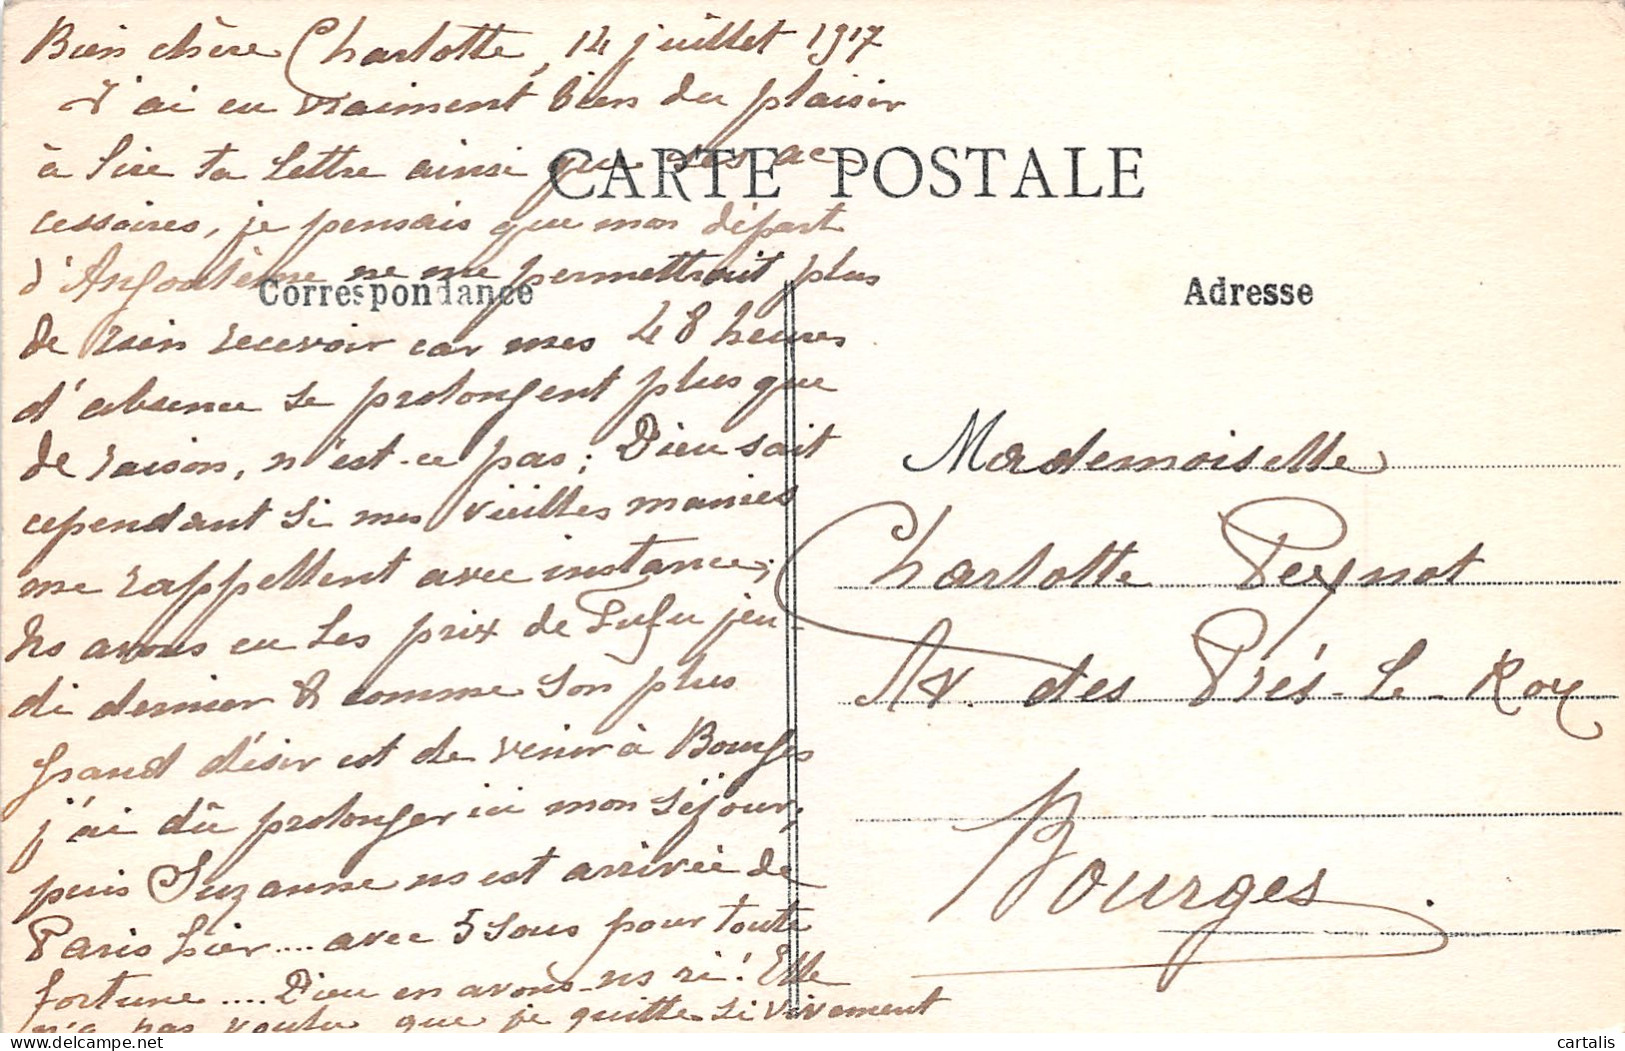 Bien chère Charlotte, 14 juillet 1917
J'ai eu vraiment bien du plaisir
à lire ta lettre ainsi que ses ac-
CARTE POSTALE
cessoires, je pensais que mon départ
d'Angoulème ne me permettrait plus
Correspondance
Adresse
de rien recevoir car mes 48 heures
d'absence se prolongent plus que
de raison, n'est-ce pas; Dieu sait
cependant si mes vieilles manies
me rappellent avec instance;
ns avons eu les prix de Fufu jeu-
di dernier & comme son plus
grand désir est de venir à Bourges
j'ai dû prolonger ici mon séjour,
puis Suzanne ns est arrivée de
Paris hier.... avec 5 sous pour toute
fortune .... Dieu en avons-ns ri! Elle
n'a pas voulu que je quitte si vivement
Mademoiselle
Charlotte Peynot
Av. des Prés-le-Roy
Bourges
cartalis